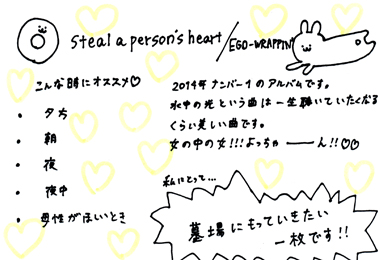 steal a person's heart / EGO-WRAPPIN'
こんな時にオススメ♡
・夕方
・朝
・夜
・夜中
・母性がほしいとき
2014年ナンバー1のアルバムです。
水中の光という曲は一生聴いていたくなる
くらい美しい曲です。
女の中の女!!!よっちゃーーん!!♡♡
私にとって...
墓場にもっていきたい
一枚です!!